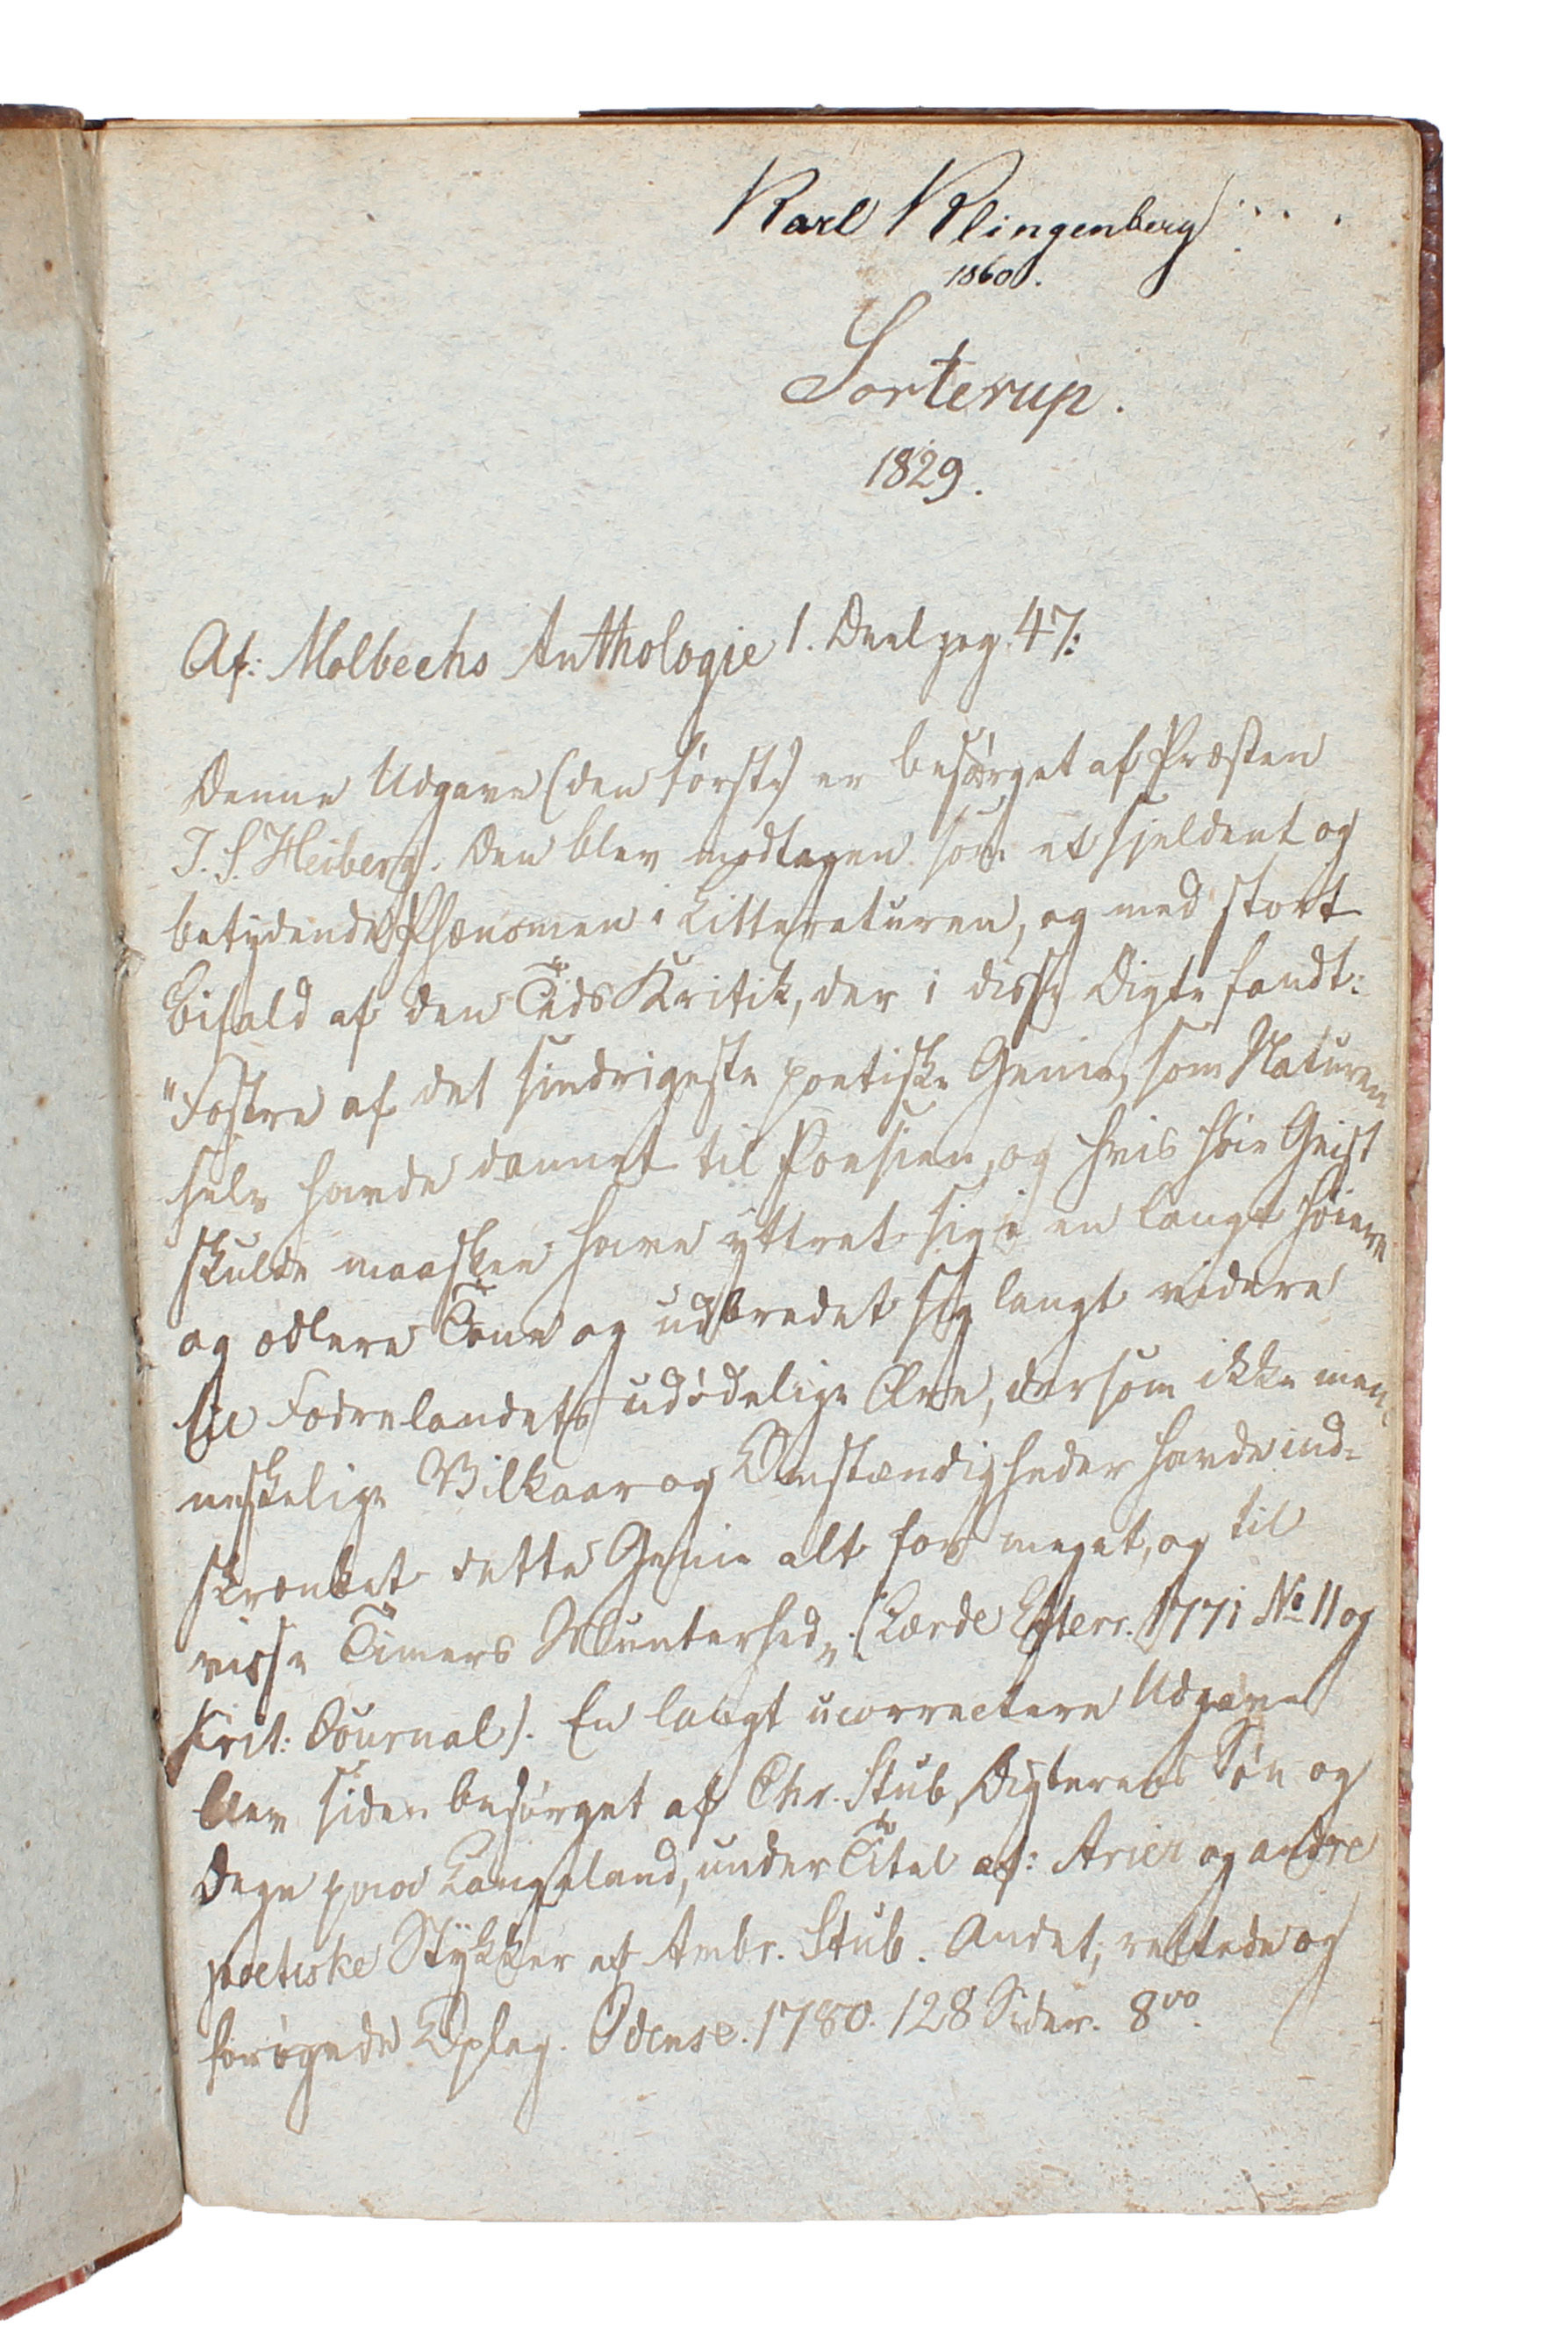 Karl Klingenberg
1860.
Sorterup.
1829.
Af: Molbechs Anthologie 1. Deel pag. 47:
Denne Udgave (den første) er besørget af Præsten
T. S. Heiberg. Den blev modtagen som et sjeldent og
betydende Phænomen i Litteraturen, og med stort
Bifald af den Tids Kritik, der i disse Digte fandt:
"Fostre af det sindrigeste poetiske Genie, som Naturen
selv havde dannet til Poesien, og hvis høie Geist
skulde maaskee have yttret sig i en langt høiere
og ædlere Tone og udbredet sig langt videre
til Fædrelandets udødelige Ære, dersom ikke men-
neskelige Vilkaar og Omstændigheder havde ind-
skrænket dette Genie alt for meget, og til
visse Timers Munterhed„. (Lærde Efterr. 1771 No 11 og
Krit: Journal). En langt ucorrectere Udgave
blev siden besørget af Chr. Stub, Digterens Søn og
Degn paa Langeland, under Titel af: Arier og andre
poetiske Stykker af Ambr. Stub. Andet, rettede og
forøgede Oplag. Odense. 1780. 128 Sider. 8vo.